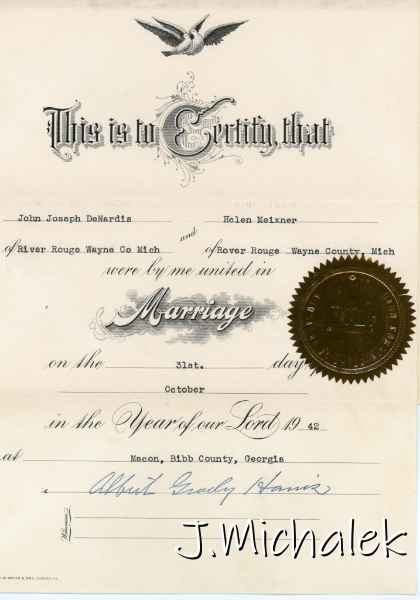 This is to Certify, that
John Joseph DeNardis and Helen Meixner
of River Rouge Wayne Co Mich of Rover Rouge Wayne County, Mich
were by me united in
Marriage
on the 31st. day of
October
in the Year of our Lord 19 42
at Macon, Bibb County, Georgia
Albert Grady Harris
Witnesses
J.Michalek